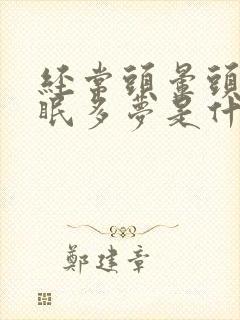 經常頭暈頭
眠多夢是什
鄭建章